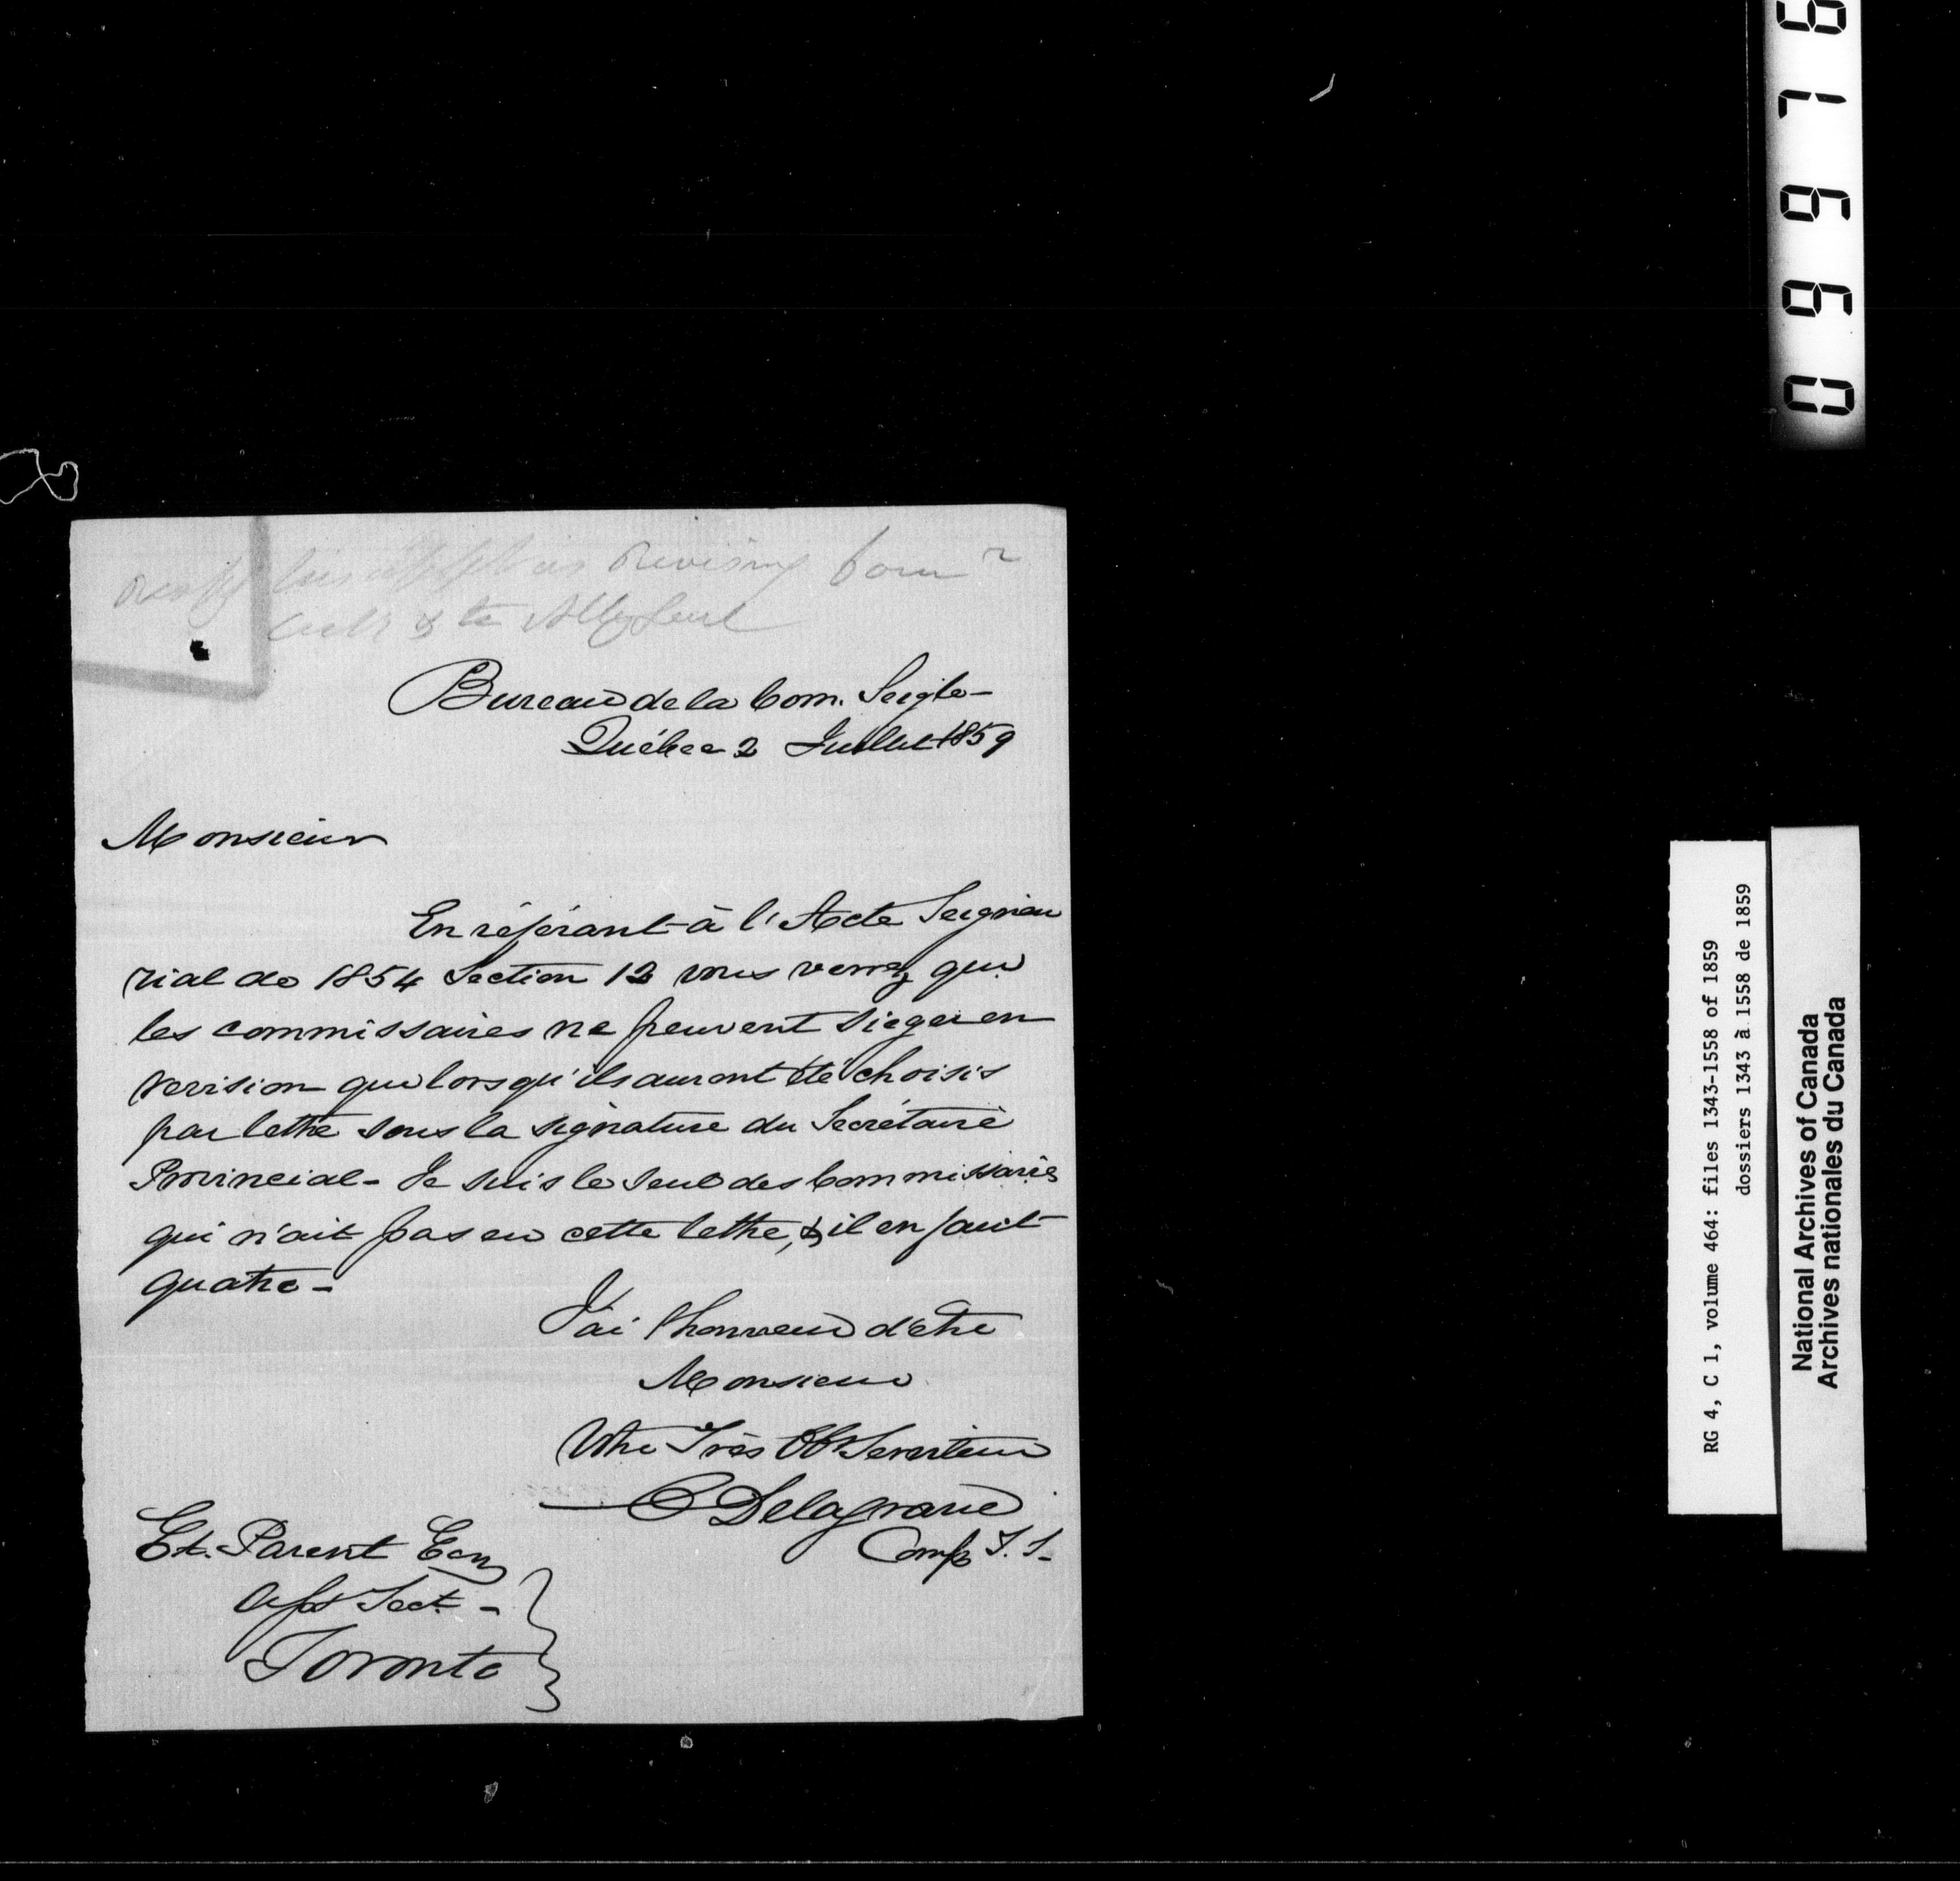 revising Comr
Bureau de la Com. Seigle-
Québec 2 Juillet 1859
Monsieur
En référant à l'Acte Seigneu
rial de 1854 Section 12 vous verrez que
les commissaires ne peuvent sieger en
revision que lorsqu'ils auront été choisis
par lettre sous la signature du Secrétaire
Provincial - Je suis le seul des Commissaires
qui n'ait pas eu cette lettre, & il en faut
quatre -
J'ai l'honneur d'etre
Monsieur
Votre Très Obt Serviteur
Delagrave
Comss T. S.
Et. Parent Ecr
Asst Sect. -
Toronto
RG 4, C 1, volume 464: files 1343-1558 of 1859
dossiers 1343 à 1558 de 1859
National Archives of Canada
Archives nationales du Canada